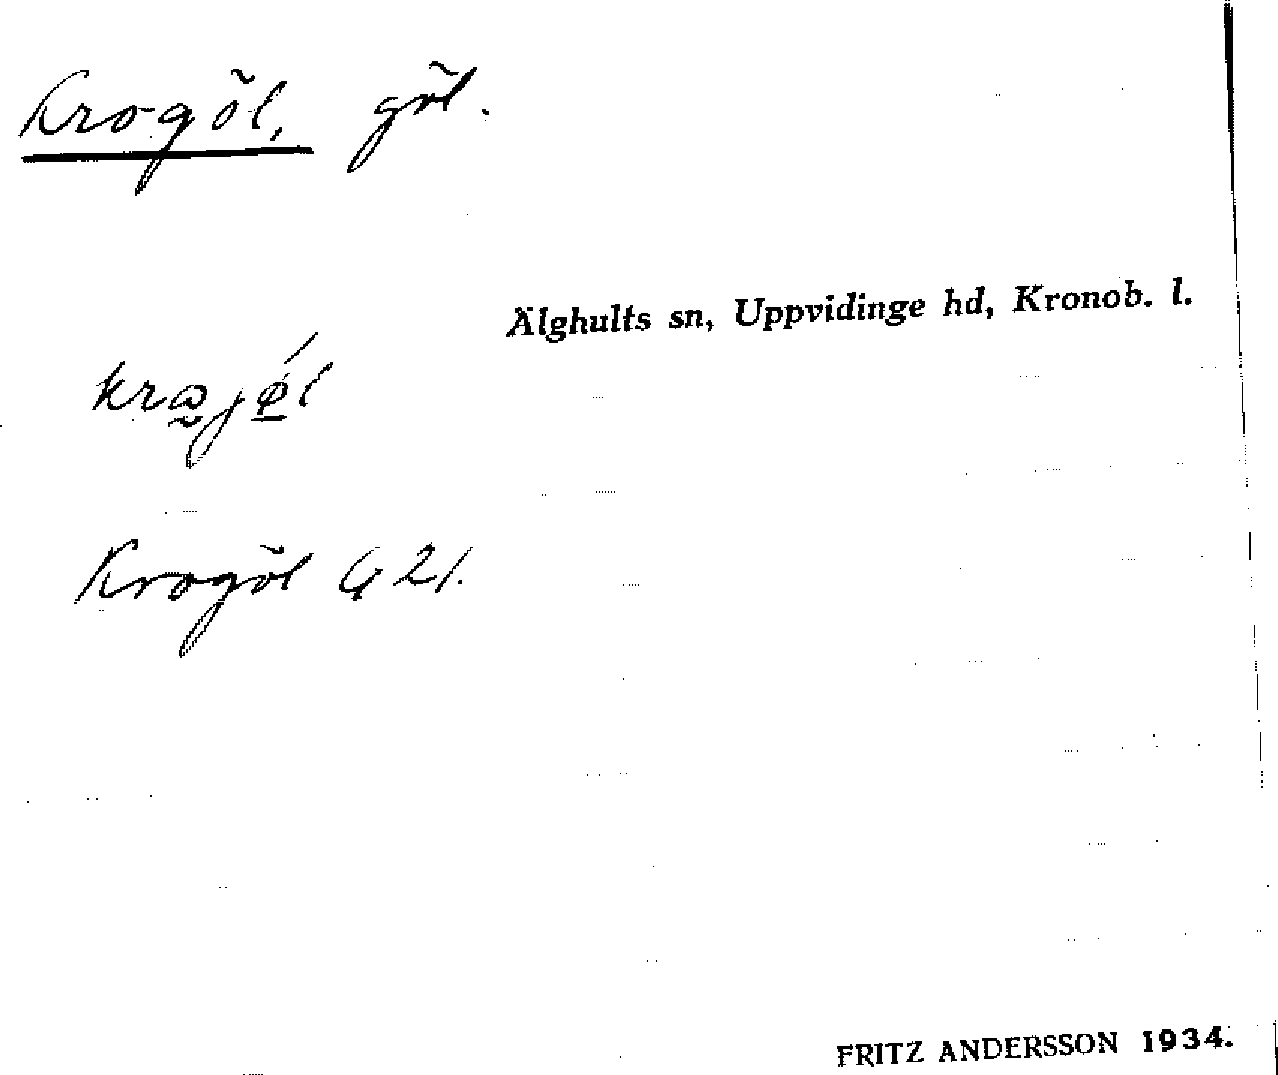 Krogöl, göl.
Älghults sn, Uppvidinge hd, Kronob. l.
Krogöl G 21.
FRITZ ANDERSSON 1934.